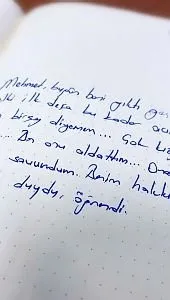 Mehmet, bugün beni
ki ilk defa bu kadar
birşey diyemem... Çok
... Ben onu aldattım...
savundum. Benim
duydu, öğrendi.